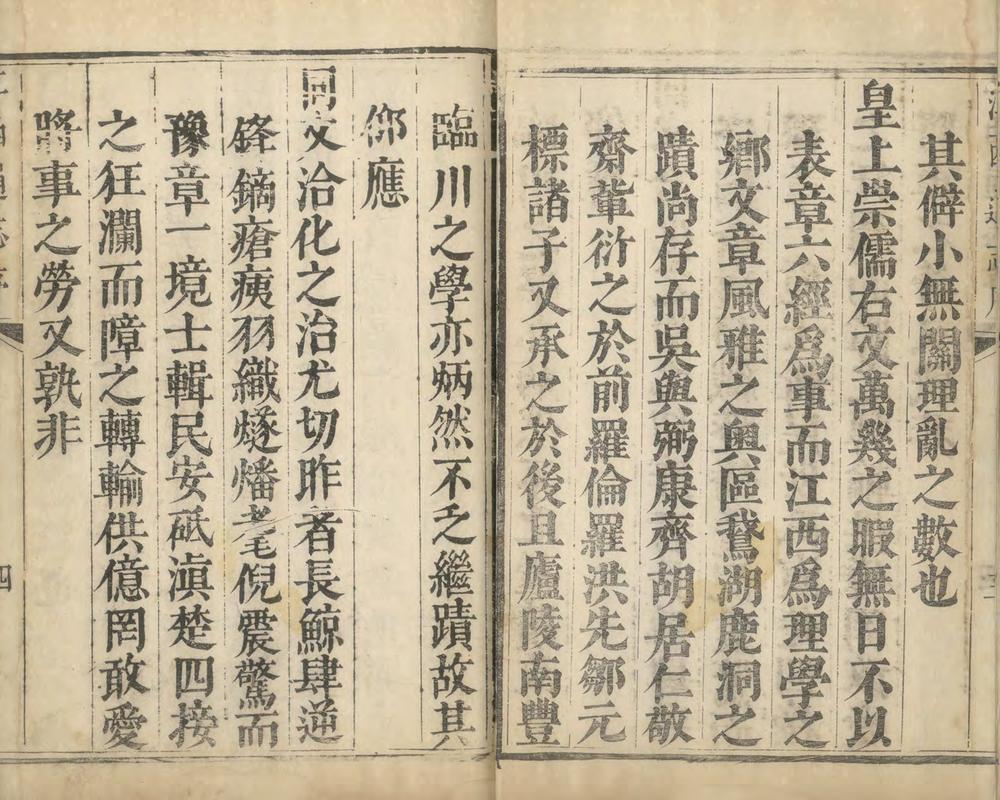 其僻小無關理亂之數也
皇上崇儒右文萬幾之暇無日不以
表章六經爲事而江西爲理學之
鄉文章風雅之奧區鵞湖鹿洞之
蹟尚存而吳與弼康齊胡居仁敬
齋軰衍之於前羅倫羅洪先鄒元
標諸子又承之於後且廬陵南豐
臨川之學亦炳然不乏繼蹟故其
仰應
同文洽化之治尤切昨者長鯨肆逆
鋒鏑瘡痍羽織燧燔耄倪震驚而
豫章一境士輯民安砥滇楚四接
之狂瀾而障之轉輸供億罔敢愛
將事之勞又孰非
四